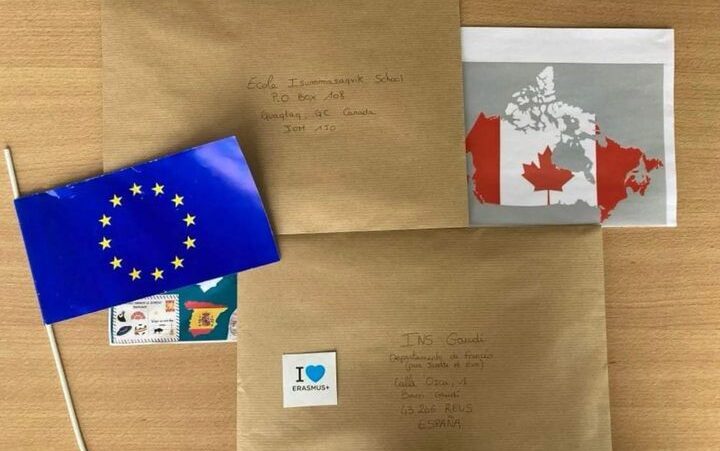 Ecole Isummasaqvik School
P.O Box 108
Quaqtaq, QC Canada
JOM 1J0
INS Gaudi
Departamento de francés
Barri Gaudí
43 206 REUS
ESPAÑA
I
ERASMUS+